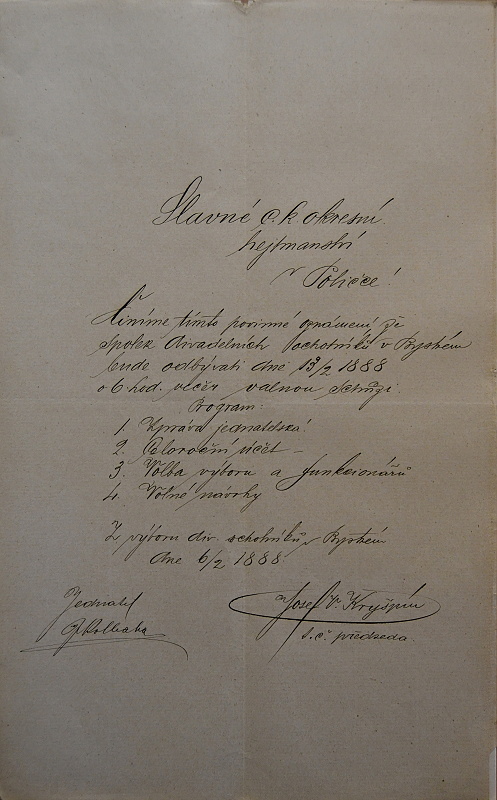 Slavné c. k. okresní
hejtmanství
v Poličce!
Činíme tímto povinné oznámení že
spolek divadelních ochotníků v Bystrém
bude odbývati dne 13/2 1888
o 6 hod. večer valnou schůzi.
Program:
1. Zpráva jednatelská!
2. Celoroční účet –
3. Volba výboru a funkcionářů
4. Volné návrhy
Z výboru div. ochotníků v Bystrém
dne 6/2 1888
Jednatel
Josef V. Kryšpín
t. č. předseda.